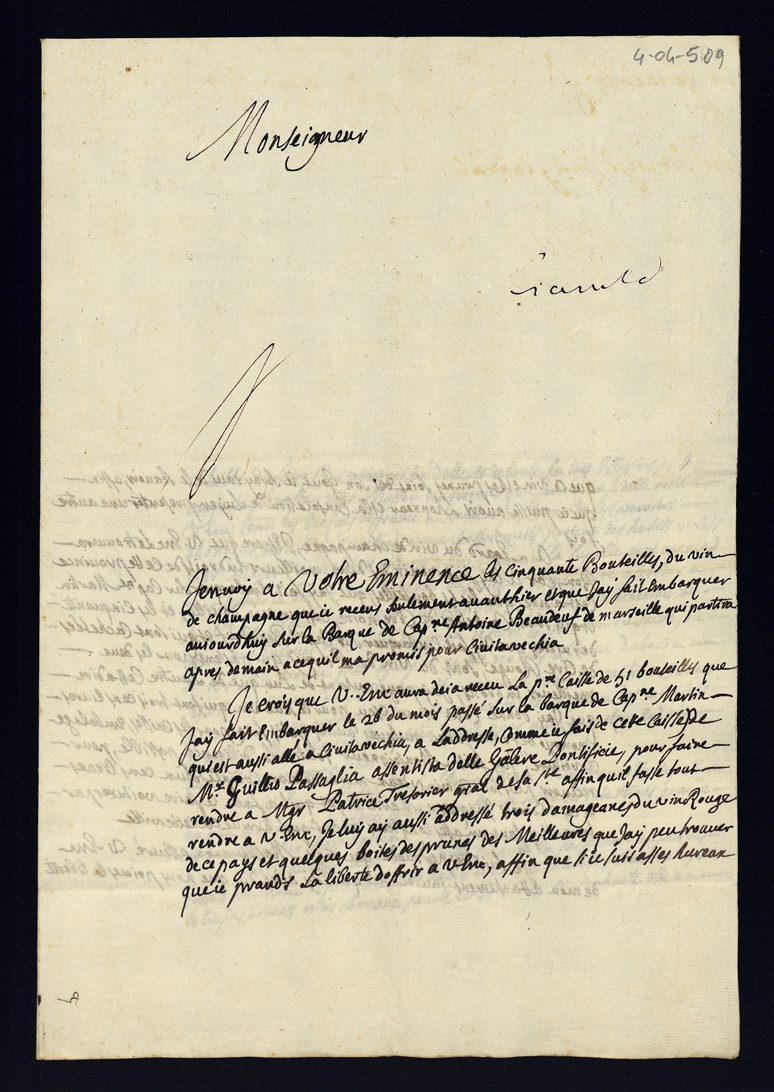 4-04-509
Monseigneur
J'envoy a Votre Eminence les cinquante Bouteilles, du vin
de champagne que ie receus seulement auanthier et que J'ay fait Embarquer
aujourd'huy sur la Barque de Cap.ne Antoine Beaudeuf de marseille qui partira
apres demain a cequ'il ma promis pour Ciuitavechia
Je crois que V. Em.ce aura deia receu La p.re Caisse de 51 bouteilles que
J'ay fait Embarquer le 26 du mois passé sur la barque de Cap.ne Martin
qui est aussi allé a Ciuitavechia, a L'addresse, Comme ie fais de cete Caisse De
M.r Guillio Passaglia assentista delle Galere Pontificie, pour faire
rendre a Mgr Patrice Tresorier gral de sa S.te affin qu'il fasse tout
rendre a V. Em.ce, Je luy ay aussi addressé trois damageanes du vin Rouge
de ce pays et quelques boites des prunes des Meilleures que J'ay peu trouuer
que ie prands La liberté d'offrir a V. Em.ce, affin que si ie suis asses hureux